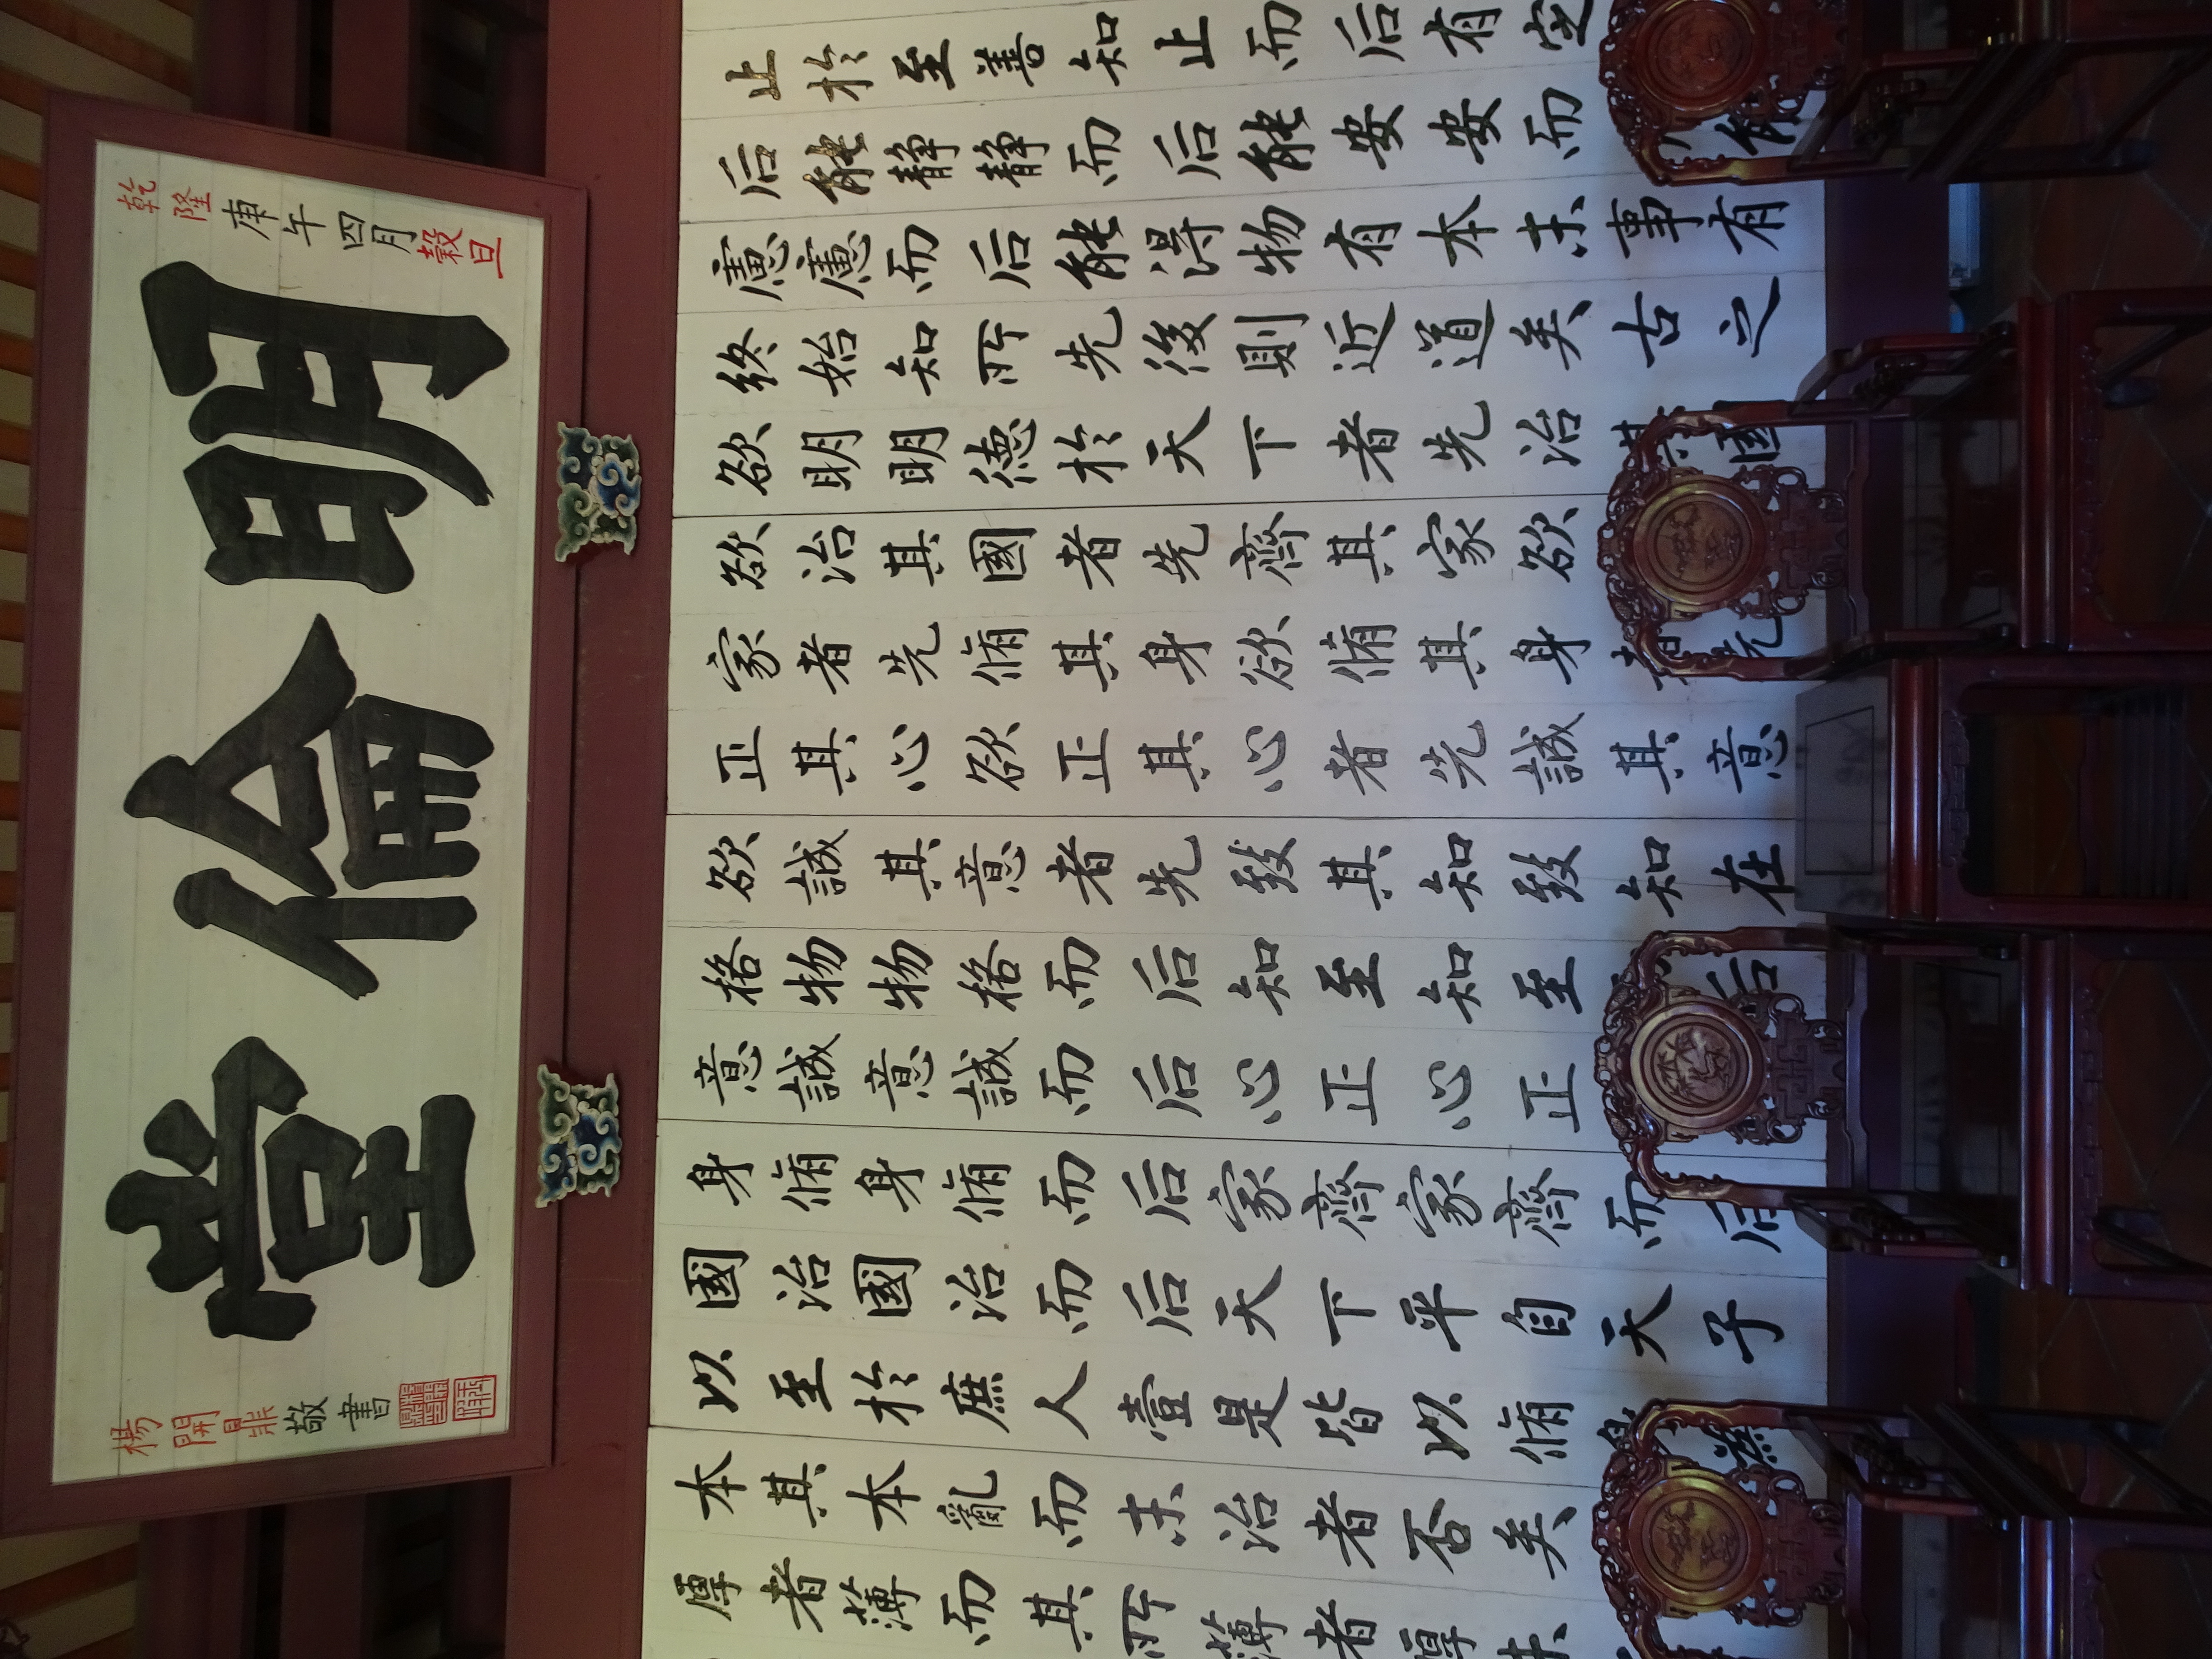 乾隆庚午四月穀旦
明倫堂
楊開鼎敬書
止於至善知止而后有定
后能静静而后能安安而能
慮慮而后能得物有本末事有
終始知所先後則近道矣古之
欲明明德於天下者先治其國
欲治其國者先齊其家欲
家者先脩其身欲脩其身者先
正其心欲正其心者先誠其意
欲誠其意者先致其知致知在
格物物格而后知至知至后
意誠意誠而后心正心正
身脩身脩而后家齊家齊而后
國治國治而后天下平自天子
以至於庶人壹是皆以脩身為
本其本亂而末治者否矣
厚者薄而其所薄者厚未